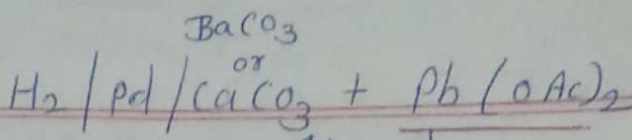 BaCO3
or
H2/Pd/CaCO3 + Pb(OAc)2